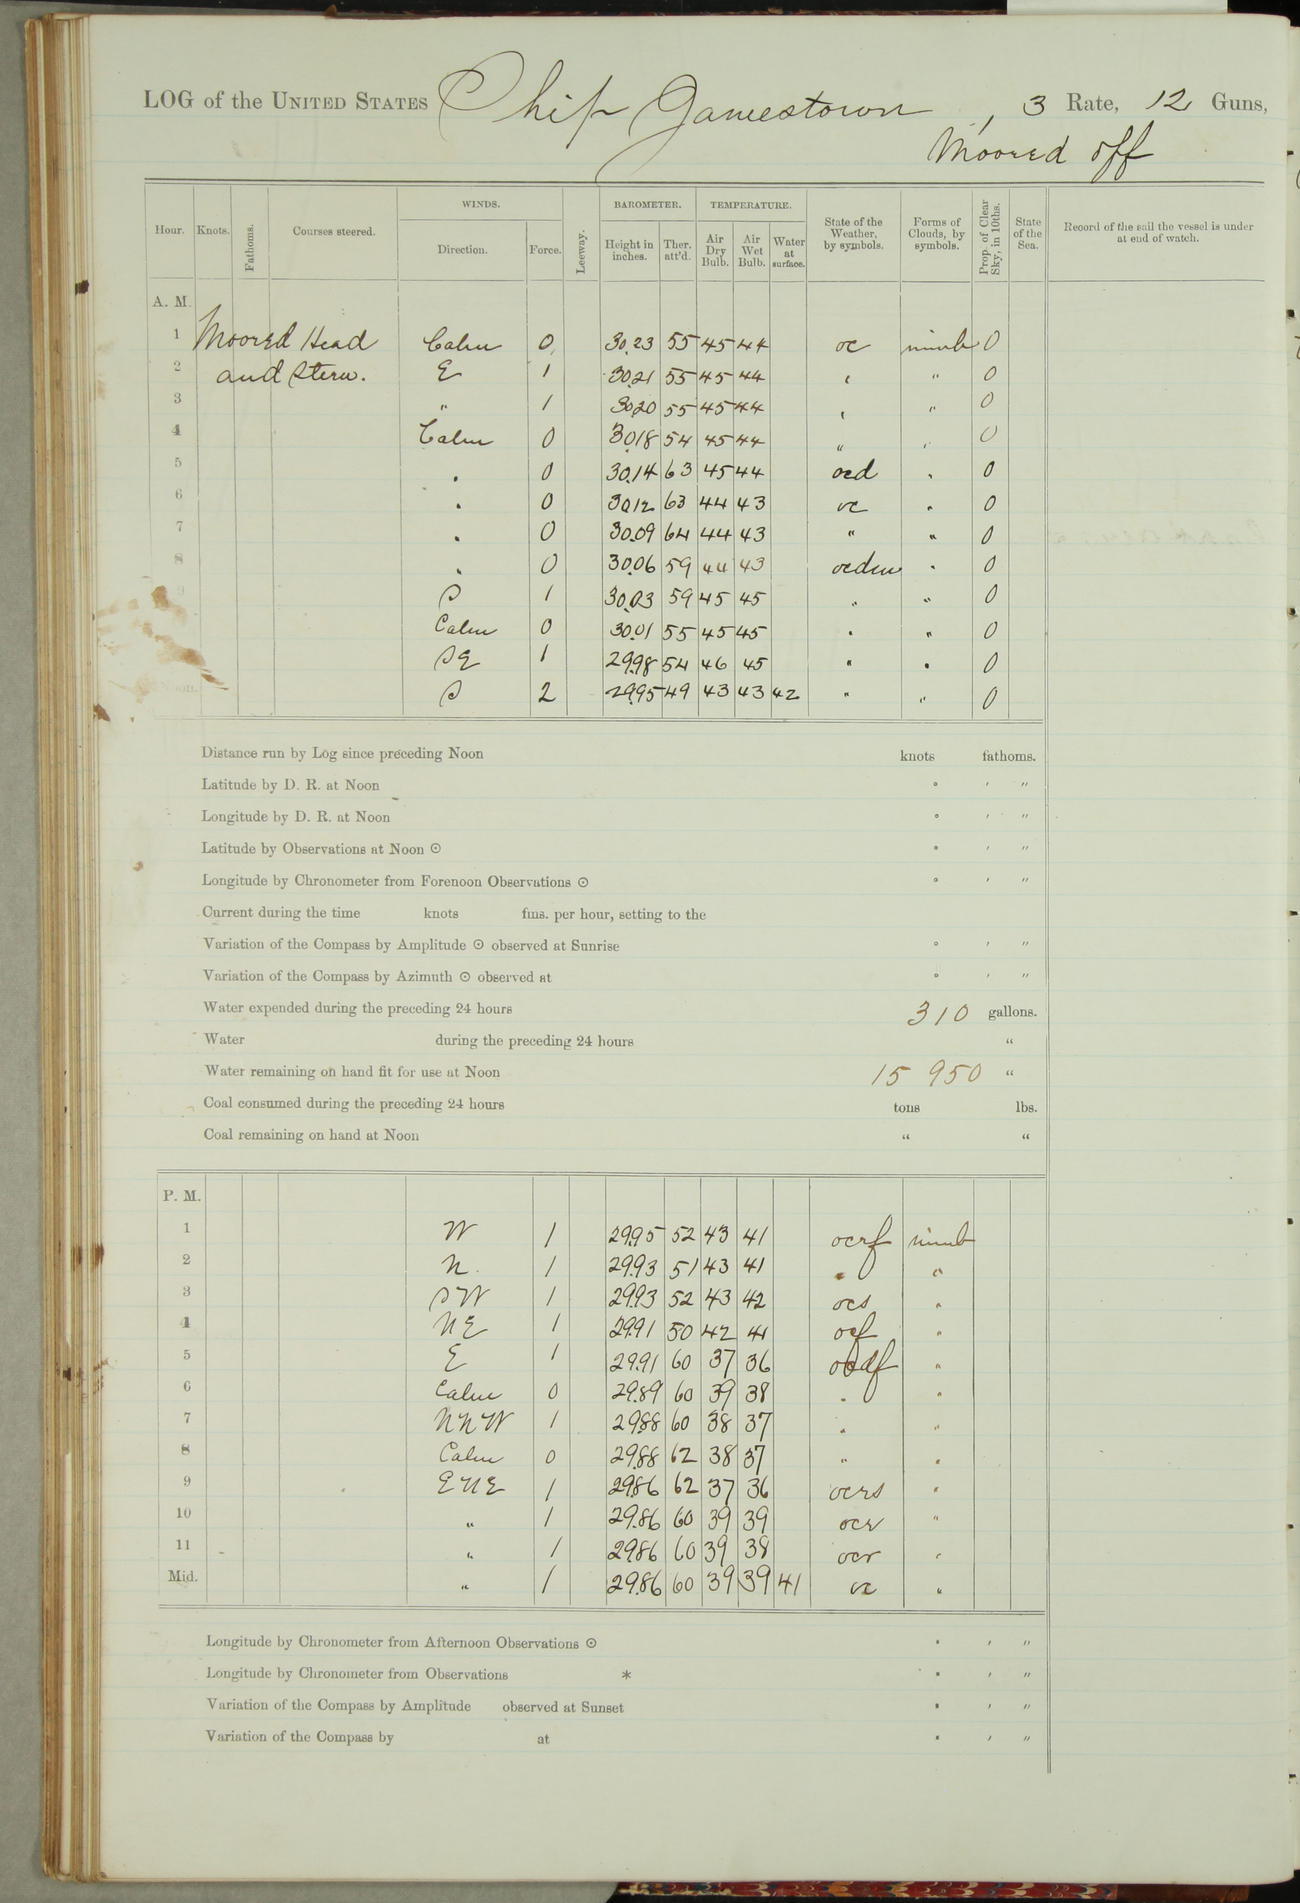 LOG of the UNITED STATES Ship Jamestown, 3 Rate, 12 Guns,
Moored off
Hour. Knots. Fathoms. Courses steered. WINDS. Direction. Force. Leeway. BAROMETER. Height in inches. Ther. att'd. TEMPERATURE. Air Dry Bulb. Air Wet Bulb. Water at surface. State of the Weather, by symbols. Forms of Clouds, by symbols. Prop. of Clear Sky, in 10ths. State of the Sea. Record of the sail the vessel is under at end of watch.
A. M.
1 Moored Head Calm 0 30.23 55 45 44 oc nimb 0
2 and Stern. E 1 30.21 55 45 44 " " 0
3 " 1 30.20 55 45 44 " " 0
4 Calm 0 30.18 54 45 44 " " 0
5 " 0 30.14 63 45 44 ocd " 0
6 " 0 30.12 63 44 43 oc " 0
7 " 0 30.09 64 44 43 " " 0
8 " 0 30.06 59 44 43 ocdm " 0
9 S 1 30.03 59 45 45 " " 0
Calm 0 30.01 55 45 45 " " 0
SE 1 29.98 54 46 45 " " 0
S 2 29.95 49 43 43 42 " " 0
Distance run by Log since preceding Noon knots fathoms.
Latitude by D. R. at Noon ° ' "
Longitude by D. R. at Noon ° ' "
Latitude by Observations at Noon ⊙ ° ' "
Longitude by Chronometer from Forenoon Observations ⊙ ° ' "
Current during the time knots fms. per hour, setting to the
Variation of the Compass by Amplitude ⊙ observed at Sunrise ° ' "
Variation of the Compass by Azimuth ⊙ observed at ° ' "
Water expended during the preceding 24 hours 310 gallons.
Water during the preceding 24 hours "
Water remaining on hand fit for use at Noon 15 950 "
Coal consumed during the preceding 24 hours tons lbs.
Coal remaining on hand at Noon " "
P. M.
1 W 1 29.95 52 43 41 ocrf nimb
2 N. 1 29.93 51 43 41 " "
3 SW 1 29.93 52 43 42 ocs "
4 NE 1 29.91 50 42 41 ocf "
5 E 1 29.91 60 37 36 ocdf "
6 Calm 0 29.89 60 39 38 " "
7 NNW 1 29.88 60 38 37 " "
8 Calm 0 29.88 62 38 37 " "
9 ENE 1 29.86 62 37 36 ocrs "
10 " 1 29.86 60 39 39 ocr "
11 " 1 29.86 60 39 38 ocr "
Mid. " 1 29.86 60 39 39 41 oc "
Longitude by Chronometer from Afternoon Observations ⊙ ° ' "
Longitude by Chronometer from Observations * ° ' "
Variation of the Compass by Amplitude observed at Sunset ° ' "
Variation of the Compass by at ° ' "